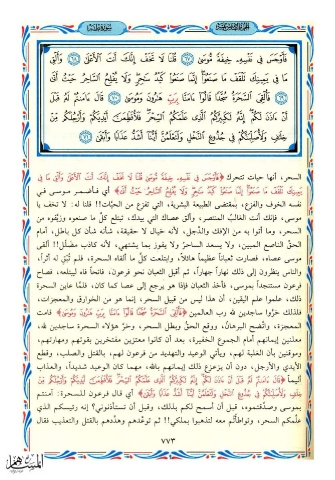 الجزء السادس عشر
سورة طه
فَأَوْجَسَ فِي نَفْسِهِ خِيفَةً مُّوسَىٰ ﴿٦٧﴾ قُلْنَا لَا تَخَفْ إِنَّكَ أَنتَ الْأَعْلَىٰ ﴿٦٨﴾ وَأَلْقِ
مَا فِي يَمِينِكَ تَلْقَفْ مَا صَنَعُوا إِنَّمَا صَنَعُوا كَيْدُ سَاحِرٍ وَلَا يُفْلِحُ السَّاحِرُ حَيْثُ أَتَىٰ
﴿٦٩﴾ فَأُلْقِيَ السَّحَرَةُ سُجَّدًا قَالُوا آمَنَّا بِرَبِّ هَارُونَ وَمُوسَىٰ ﴿٧٠﴾ قَالَ آمَنتُمْ لَهُ قَبْلَ
أَنْ آذَنَ لَكُمْ إِنَّهُ لَكَبِيرُكُمُ الَّذِي عَلَّمَكُمُ السِّحْرَ فَلَأُقَطِّعَنَّ أَيْدِيَكُمْ وَأَرْجُلَكُم مِّنْ
خِلَافٍ وَلَأُصَلِّبَنَّكُمْ فِي جُذُوعِ النَّخْلِ وَلَتَعْلَمُنَّ أَيُّنَا أَشَدُّ عَذَابًا وَأَبْقَىٰ ﴿٧١﴾
السحر، أنها حيات تتحرك ﴿فَأَوْجَسَ فِي نَفْسِهِ خِيفَةً مُوسَى قُلْنَا لَا تَخَفْ إِنَّكَ أَنتَ الْأَعْلَى وَأَلْقِ مَا فِي
يَمِينِكَ تَلْقَفْ مَا صَنَعُوا إِنَّمَا صَنَعُوا كَيْدُ سَاحِرٍ وَلَا يُفْلِحُ السَّاحِرُ حَيْثُ أَتَى﴾ أي فأضمر موسى في
نفسه الخوف والفزع، بمقتضى الطبيعة البشرية، التي تفزع من الحيّات!! قلنا له: لا تخف يا
موسى، فإنك أنت الغالبُ المنتصر، وألقِ عصاك التي بيدك، تبتلع كلَّ ما صنعوه وزيّفوه من
السحر، وما أتوا به من الإفك والدَّجل، لأنه خيال لا حقيقة، شأنه شأن كل باطل، أمام
الحقّ الناصع المبين، ولا يسعد الساحرُ ولا يفوز بما يشتهي، لأنه كاذب مضلّل!! ألقى
موسى عصاه، فصارت ثعباناً عظيماً هائلاً، وابتلعت كلَّ ما ألقاه السحرة، فلم تُبْقِ له أثراً،
والناس ينظرون إلى ذلك نهاراً جهاراً، ثم أقبل الثعبان نحو فرعون، فاتحاً فاه ليبتلعه، فصاح
فرعون مستنجداً بموسى، فأخذ الثعبان فإذا هو يرجع إلى عصا كما كان، فلمّا عاين السحرة
ذلك، علموا علم اليقين، أن هذا ليس من قبيل السحر، إنما هو من الخوارق والمعجزات،
فلذلك خرُّوا ساجدين لله رب العالمين ﴿فَأُلْقِيَ السَّحَرَةُ سُجَّدًا قَالُوا آمَنَّا بِرَبِّ هَارُونَ وَمُوسَى﴾ قامت
المعجزة، واتّضح البرهانُ، ووقع الحقُّ وبطل السحر، وخرَّ هؤلاء السحرة ساجدين لله،
معلنين إيمانهم أمام الجموع الخفيرة، بعد أن كانوا معتزين مفتخرين بقوتهم ومهارتهم،
وموقنين بأن الغلبة لهم، ويأتي الوعيد والتهديد من فرعون لهم، بالقتل والصلب، وقطع
الأيدي والأرجل، دون أن يزعزع ذلك إيمانهم بالله، مهما كان الوعيد شديداً، والعذاب
أليماً ﴿قَالَ آمَنتُمْ لَهُ قَبْلَ أَنْ آذَنَ لَكُمْ إِنَّهُ لَكَبِيرُكُمُ الَّذِي عَلَّمَكُمُ السِّحْرَ فَلَأُقَطِّعَنَّ أَيْدِيَكُمْ وَأَرْجُلَكُم مِّنْ
خِلَافٍ وَلَأُصَلِّبَنَّكُمْ فِي جُذُوعِ النَّخْلِ وَلَتَعْلَمُنَّ أَيُّنَا أَشَدُّ عَذَابًا وَأَبْقَى﴾ أي قال فرعون للسحرة: آمنتم
بموسى وصدَّقتموه، قبل أن أسمح لكم بذلك، وقبل أن تستأذنوني؟ إنه رئيسكم الذي
علَّمكم السحر، وتواطأتُم معه لتذهبوا بملكي!! ثم توعَّدهم وهدَّدهم بالقتل والتعذيب فقال
٧٧٣